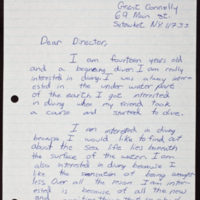 Grant Connolly
69 Main St.
Setauket N.Y. 11733
Dear Director,
I am fourteen years old
and a beginning diver. I am really
interested in diving. I was always
ested in the under water part
of the earth. I got interested
in diving when my friend took
a course and started to dive.
I am interested in diving
because I would like to find out
about the sea life lies beneath
the surface of the water. I am
also interested in diving because I
like the sensation of being weight
less. Over all the reason I am inter-
ested is because of all the new